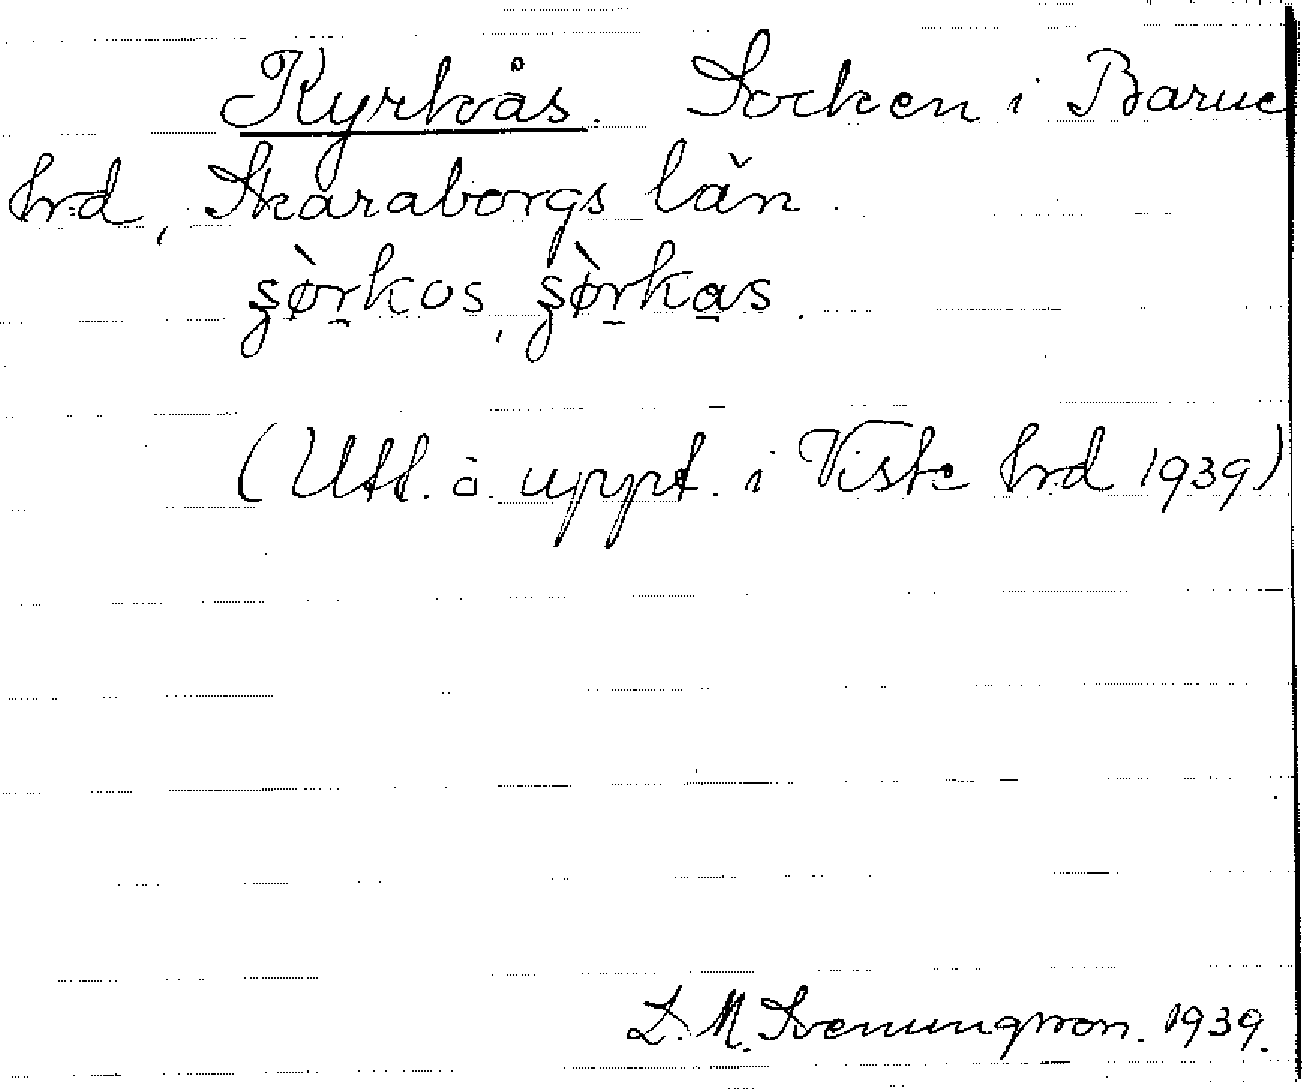 Kyrkås. Socken i Barne
hrd, Skaraborgs län.
ʂø̀rkos, ʂø̀rkas.
(Utt. o. uppt. i Viste hrd 1939)
D. M. Svenungsson. 1939.